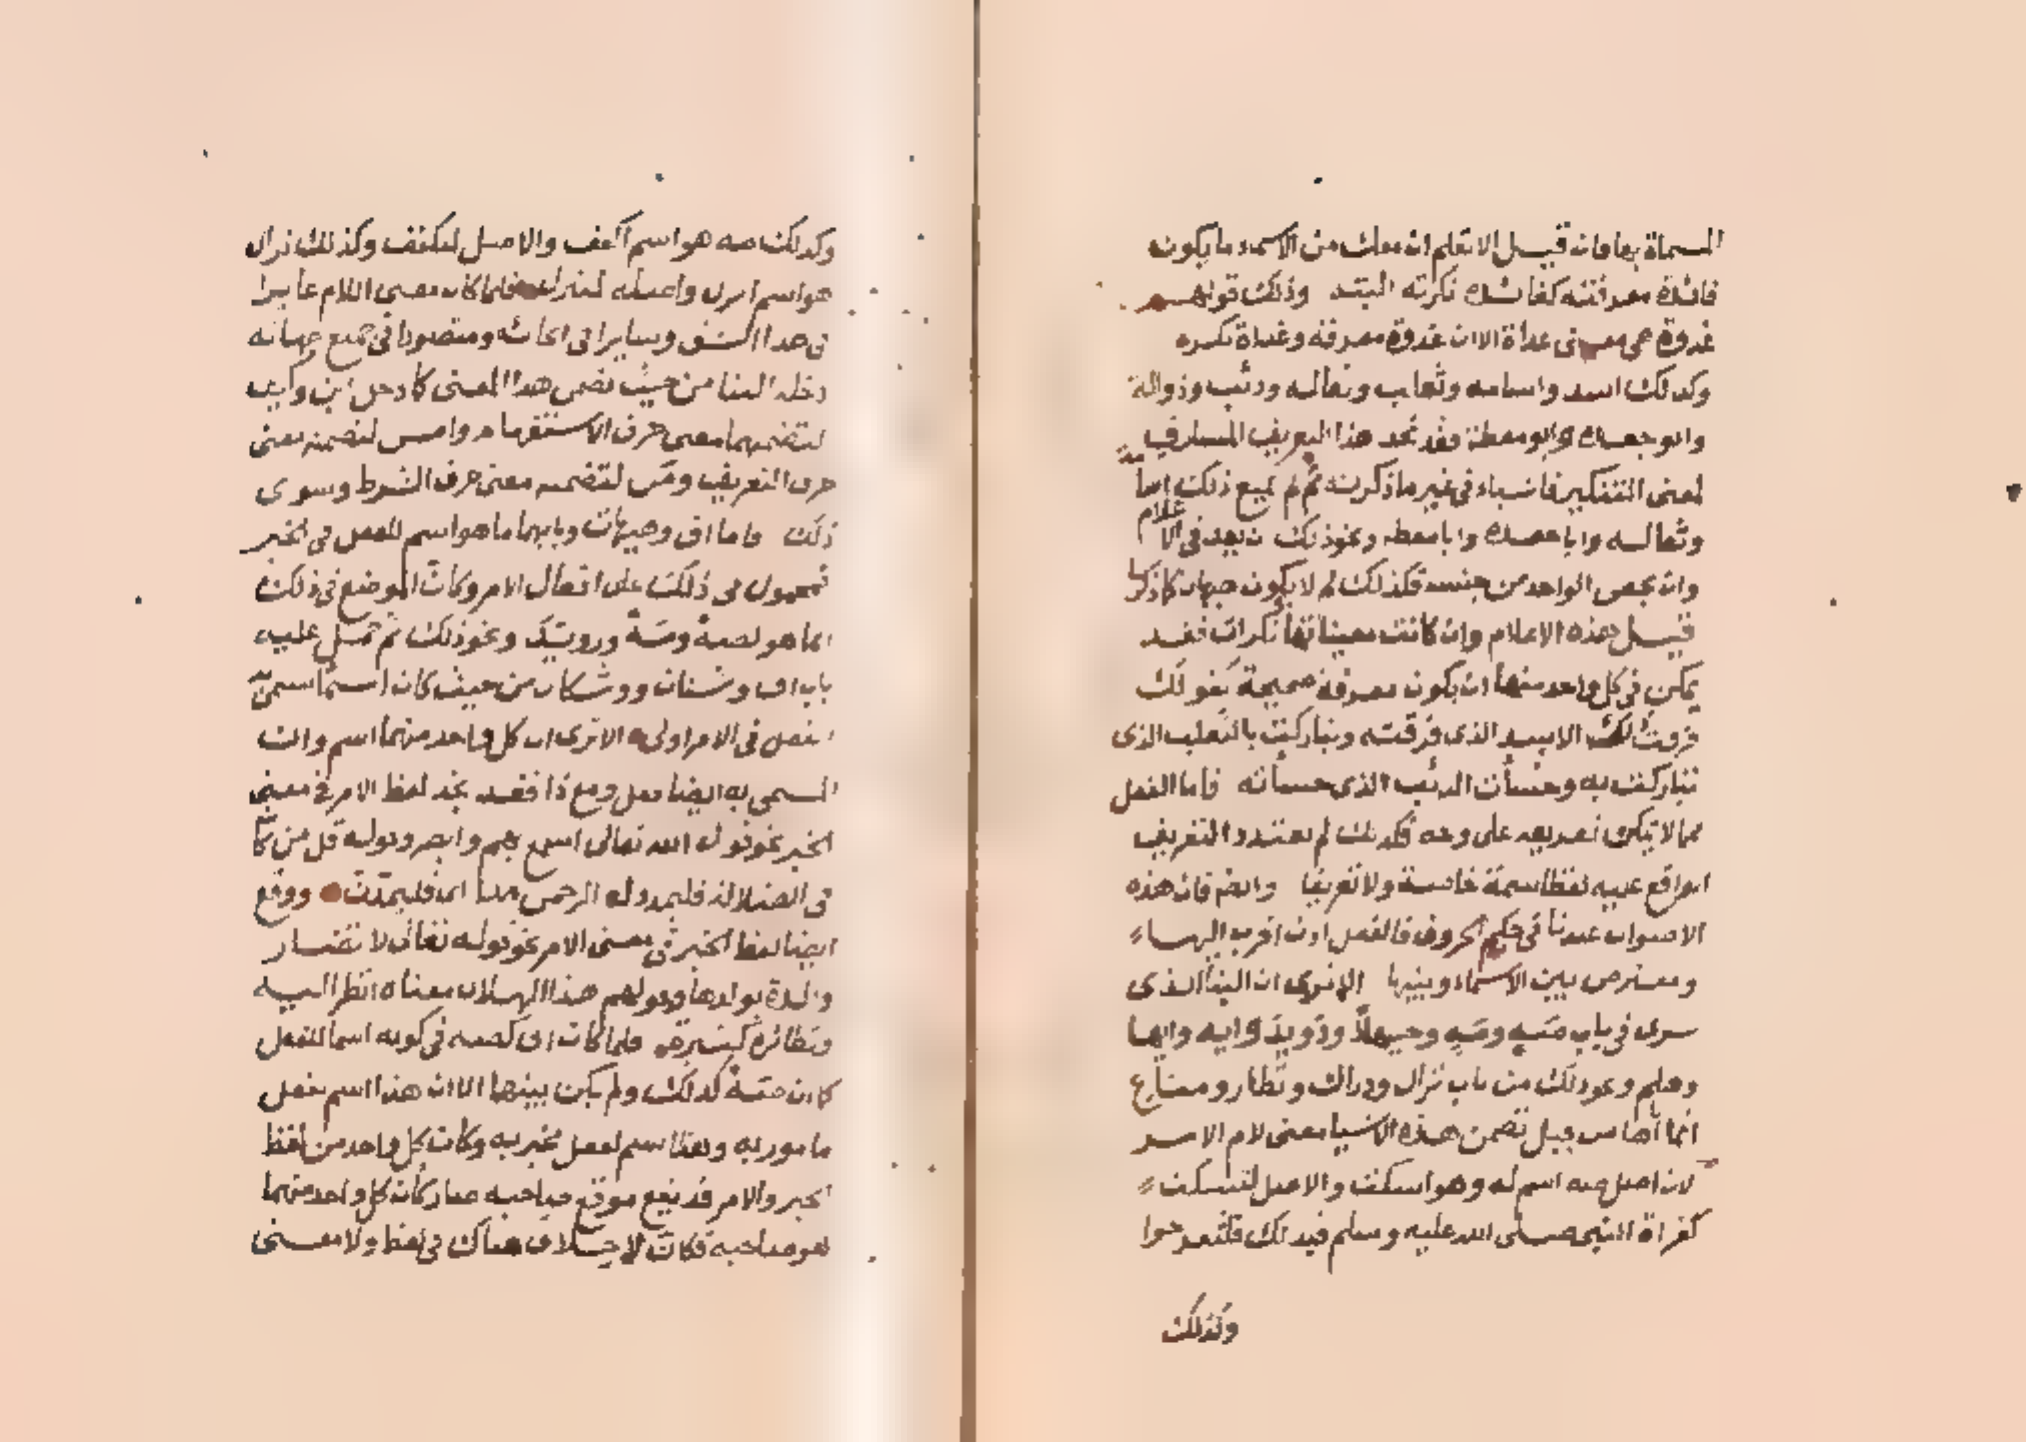 المسماة بها فان قيل الا تعلم ان معك من الاسماء ما يكون
فائدة معرفته كفائدة نكرته البتة وذلك قولهم
غدوة هي معنى غداة الا ان غدوة معرفة وغداة نكرة
وكذلك اسد واسامة وثعلب وثعالة وذئب وذوالة
وابو جعدة وابو معطة فقد تجد هذا التعريف المساوق
لمعنى التنكير فاشيا في غير ما ذكرته ثم لم يمنع ذلك اسا
وثعالة وابا جعدة وابا معطة ونحو ذلك ان يعد في الاعلام
وان يخص الواحد من جنسه فكذلك لم لا يكون جهات كما ذكرنا
قيل هذه الاعلام وان كانت معيناتها نكرات فقد
يمكن في كل واحد منها ان يكون معرفة صحيحة كقولك
فرقت ذلك الاسد الذي فرقته وتباركت بالثعلب الذي
تباركت به وخسأت الذئب الذي خسأته فاما الفعل
مما لا يمكن تعريفه على وجه فكذلك لم يعتدد التعريف
الواقع عليه لفظا سمة خاصة ولا تعريفا وايضا فان هذه
الاصوات عندنا في حكم الحروف فالفعل اذن اقرب اليها
ومعترض بين الاسماء وبينها الا ترى ان البنا الذي
سرى في باب صه ومه وحيهلا ورويد وايه وايها
وهلم ونحو ذلك من باب نزال ودراك ونظار ومناع
انما اتاها من قبل تضمن هذه الاشيا معنى لام الامر
لان اصل صه اسم له وهو اسكت والاصل لتسكت
كقراة النبي صلى الله عليه وسلم فبذلك فلتفرحوا
وكذلك
وكذلك مه هو اسم اكفف والاصل لتكفف وكذلك نزال
هو اسم انزل واصله لتنزل فلما كان معنى اللام عابرا
في هذا الشق وسايرا في انحائه ومتصورا في جميع جهاته
دخله البنا من حيث تضمن هذا المعنى كما دخل اين وكيف
لتضمنهما معنى حرف الاستفهام وامس لتضمنه معنى
حرف التعريف ومن لتضمنه معنى حرف الشرط وسوى
ذلك فاما اف وهيهات وبابهما ما هو اسم للفعل في الخبر
فمحمول في ذلك على افعال الامر وكان الموضع في ذلك
انما هو لصه ومه ورويد ونحو ذلك ثم حمل عليه
باب اف وشتان ووشكان من حيث كان اسما سمي به
الفعل في الامر اولى الا ترى ان كل واحد منهما اسم وان
المسمى به ايضا فعل ومع ذا فقد تجد لفظ الامر في معنى
الخبر نحو قول الله تعالى اسمع بهم وابصر وقوله قل من كان
في الضلالة فليمدد له الرحمن مدا اي فليمدن ووقع
ايضا لفظ الخبر في معنى الامر نحو قوله تعالى لا تضار
والدة بولدها وقولهم هذا الهلال معناه انظر اليه
ونظائره كثيرة فلما كان اف كصه في كونه اسما للفعل
كما ان صه كذلك ولم يكن بينهما الا ان هذا اسم لفعل
مامور به وهذا اسم لفعل مخبر به وكان كل واحد من لفظ
الخبر والامر قد يقع موقع صاحبه صار كان كل واحد منهما
هو صاحبه فكان لا خلاف هناك في لفظ ولا معنى